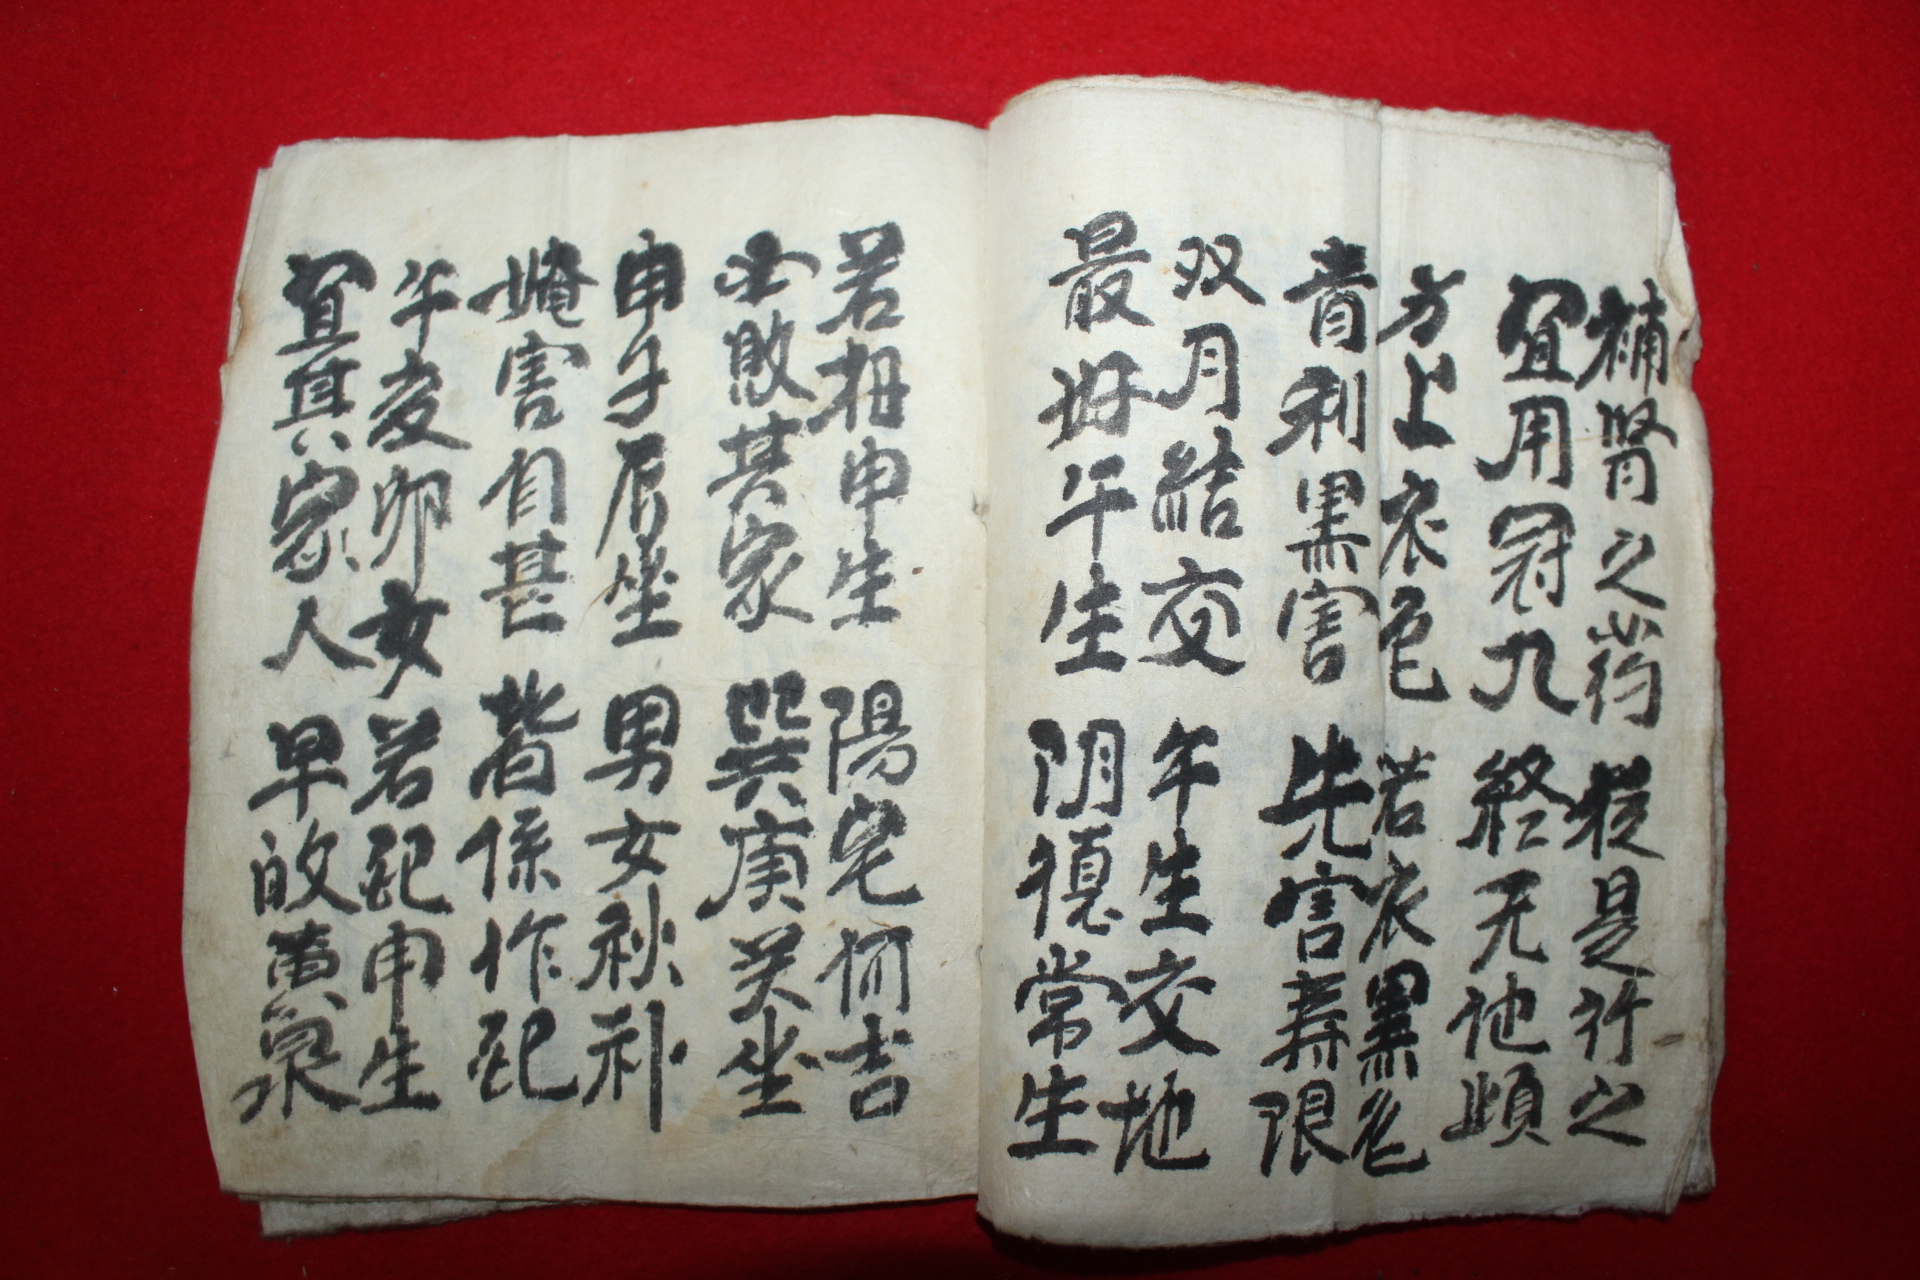 補腎之药 從是行之
宜用冠九 終无他頉
方上衣色 若衣黑色
青利黑害 先害壽限
双月結交 午生交地
最好午生 阴德常生
若相申生 陽宅何吉
必敗其家 巽庚癸坐
申子辰坐 男女秋
害自甚 皆係作配
午亥卯女 若配申生
宜其家人 早收黄泉